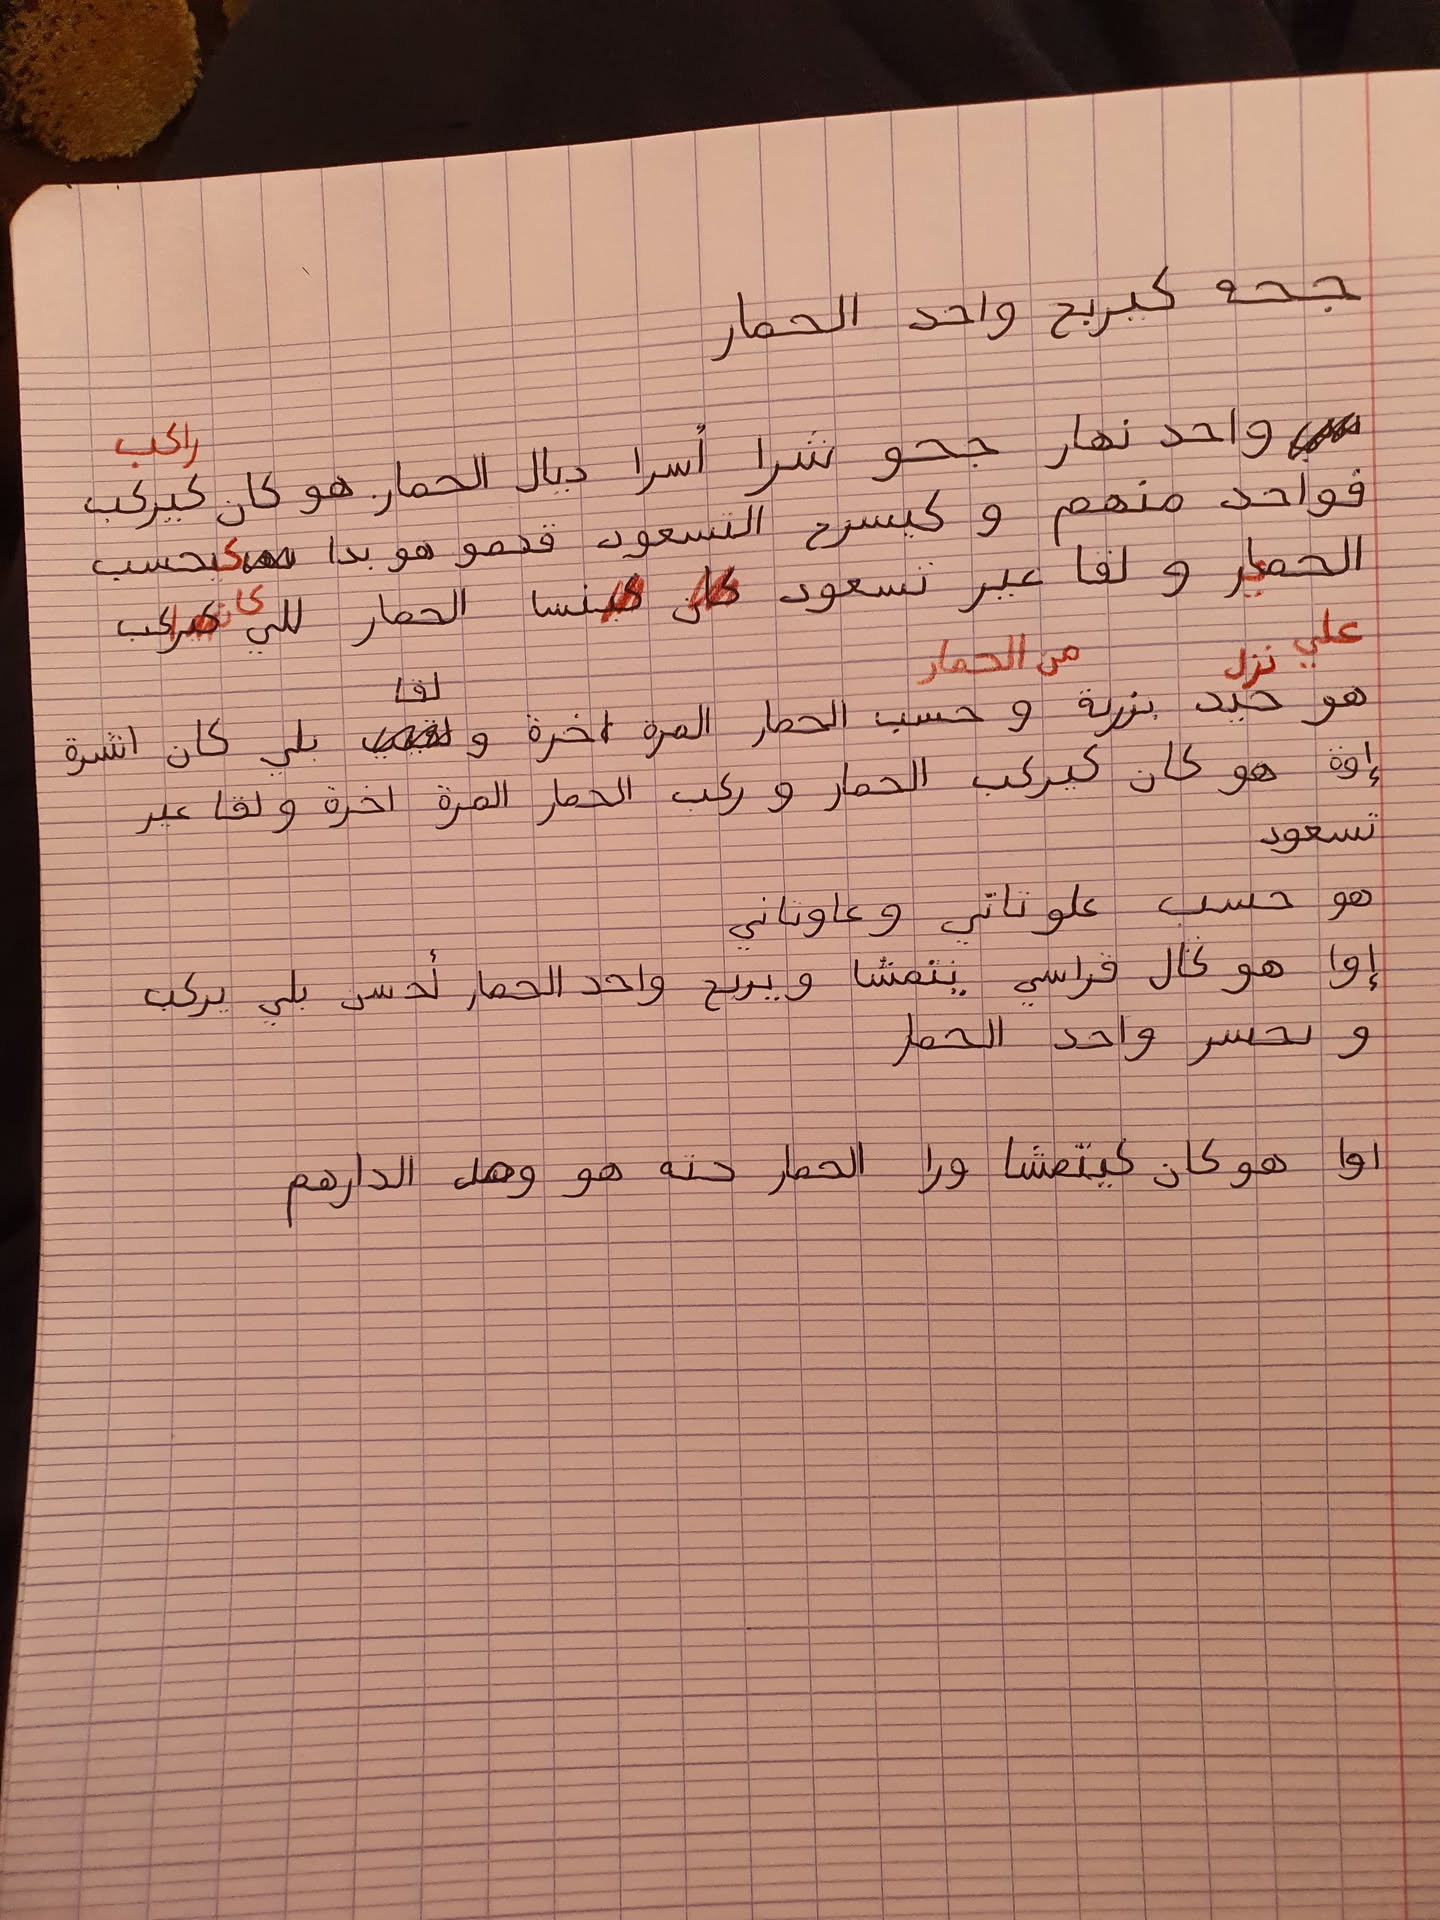 جحه كيربح واحد الحمار
راكب
واحد نهار جحو شرا أسرا ديال الحمار. هو كان كيركب
فواحد منهم و كيسرح التسعود قدمو هو بدا كيحسب
الحمير و لقا عير تسعود نسا الحمار للي كان راكب
علي نزل من الحمار
لقا
هو حيد بزربة و حسب الحمار المرة اخرة و بلي كان اشرة
إوة هو كان كيركب الحمار و ركب الحمار المرة اخرة و لقا عير
تسعود
هو حسب علوتاتي و عاوتاني
إوا هو گال فراسي يتمشا ويربح واحد الحمار أحسن بلي يركب
و يخسر واحد الحمار
اوا هو كان كيتمشا ورا الحمار حته هو وهل الدارهم